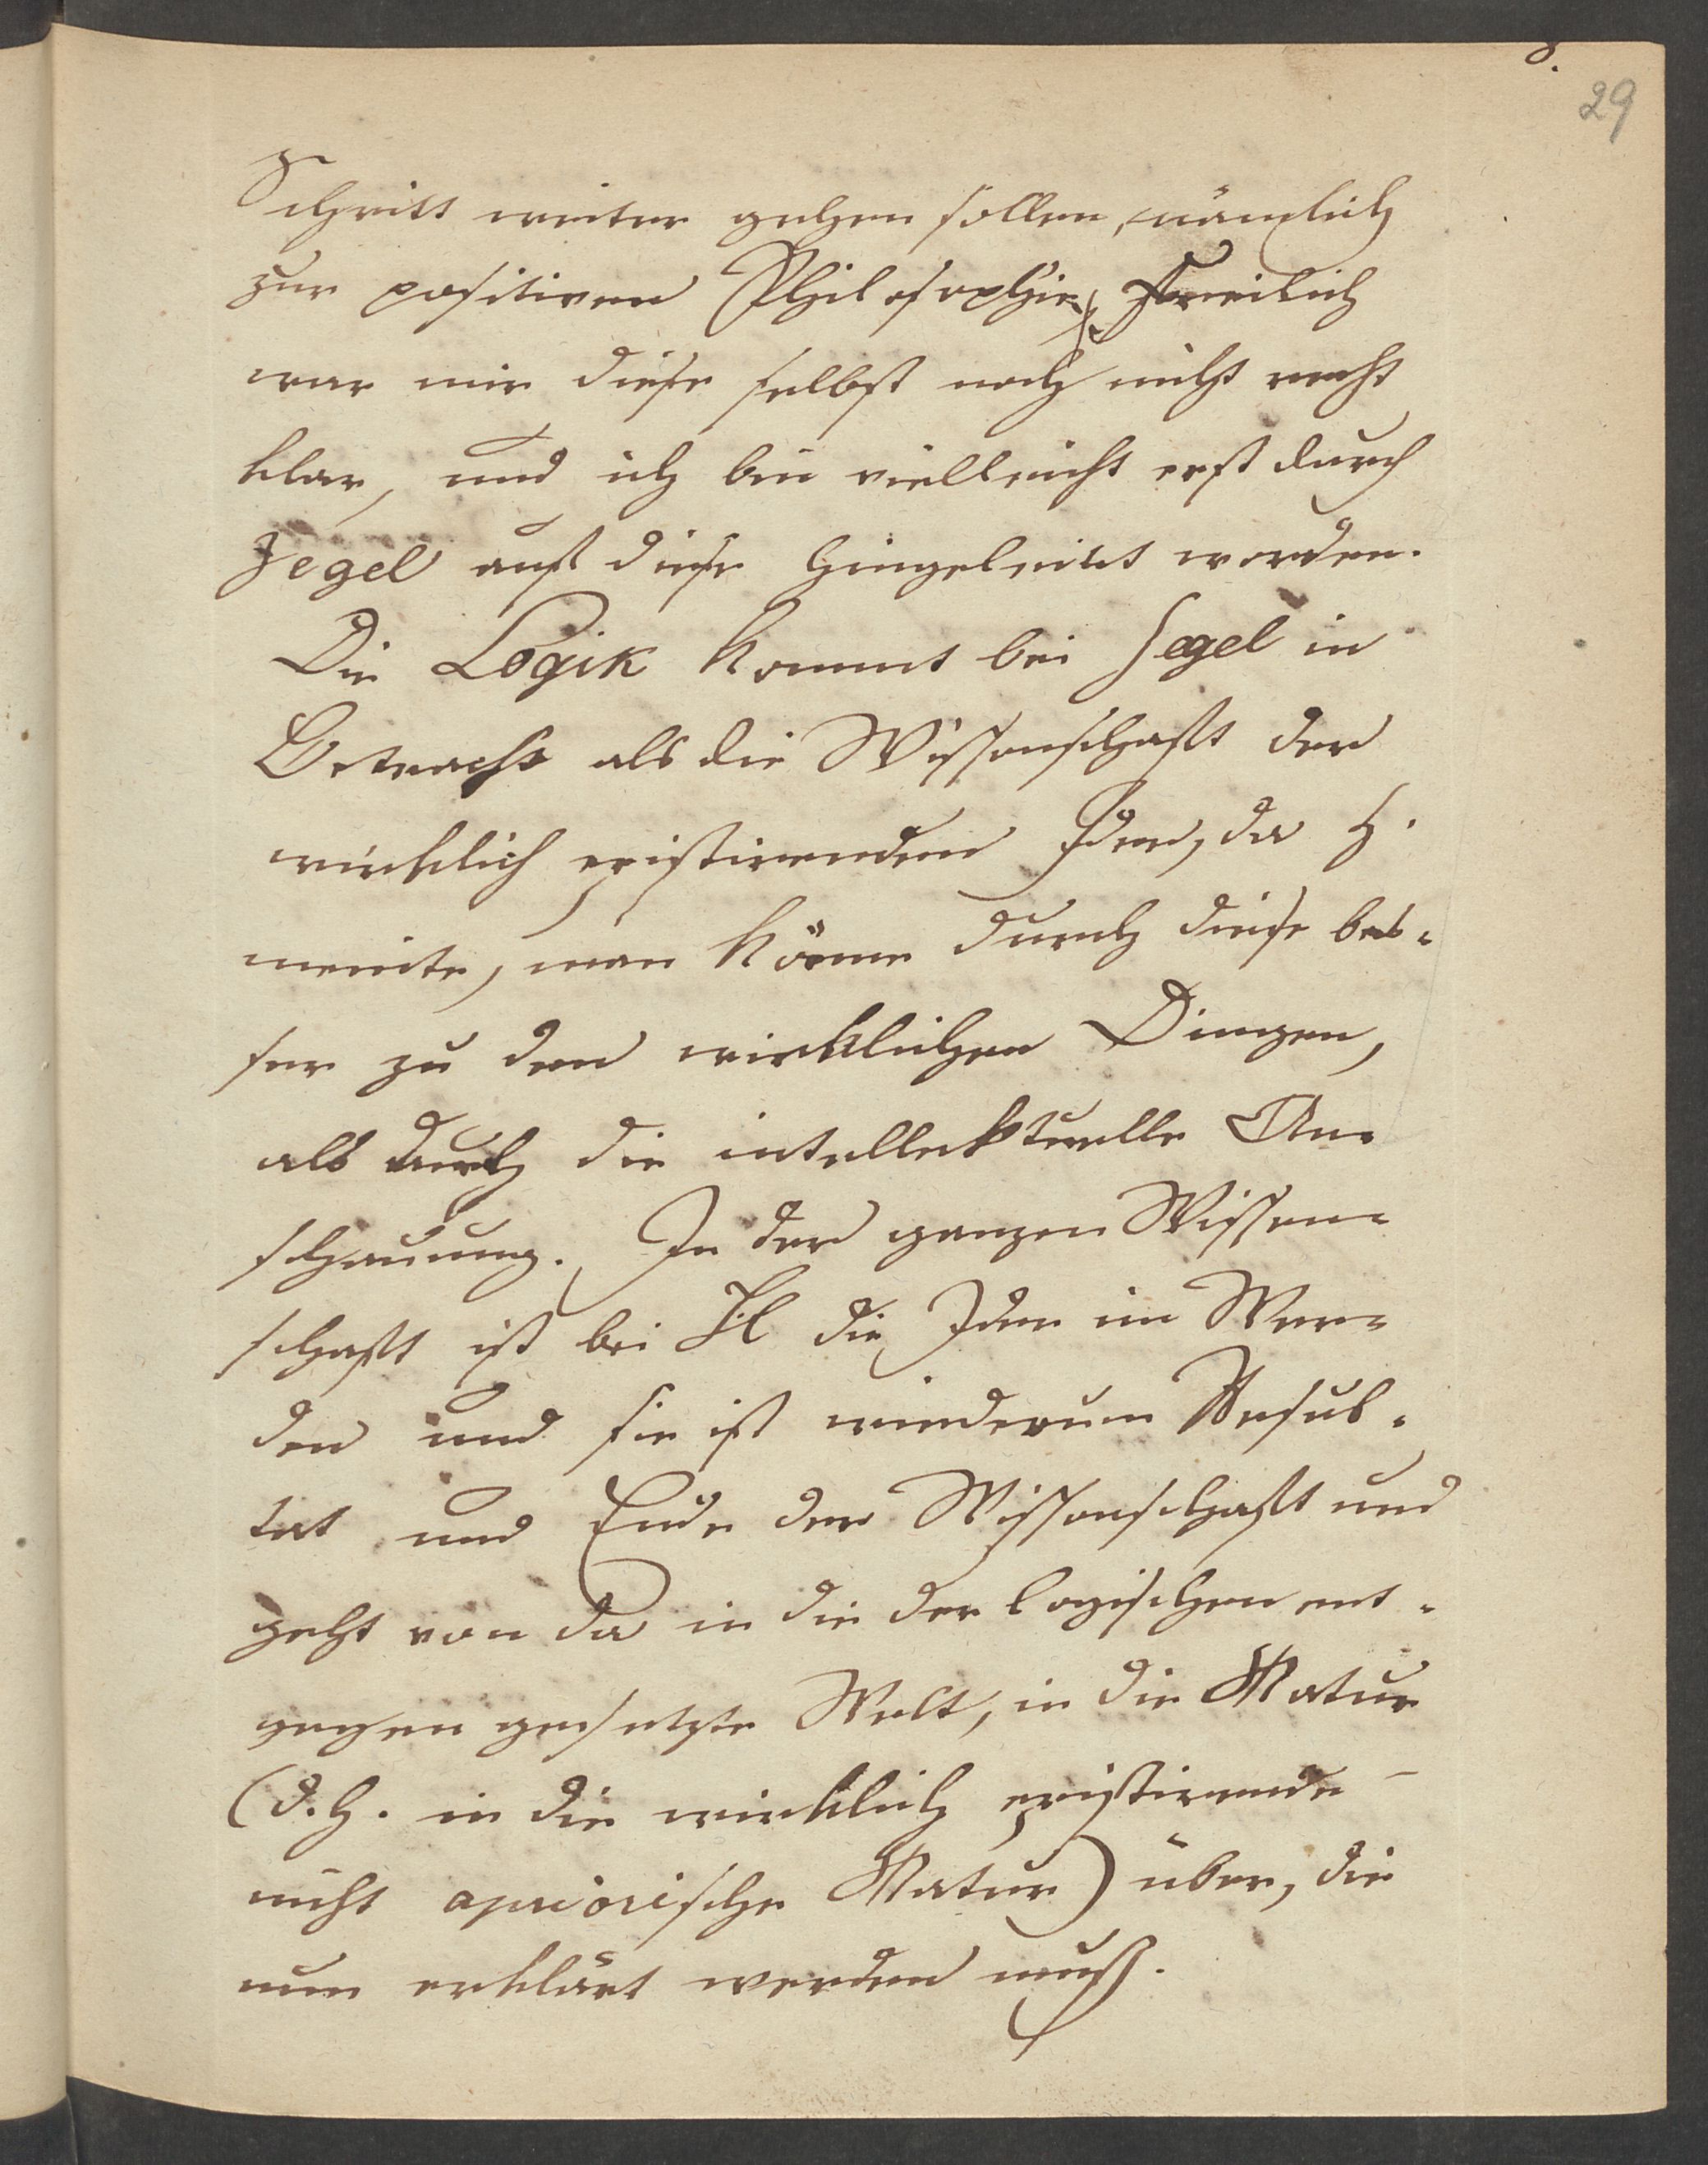 29
Schritt weiter gehen sollen, nämlich
zur positiven Philosophie. Freilich
war mir diese selbst noch nicht recht
klar, und ich bin vielleicht erst durch
Hegel auf diese hingeleitet worden.
Die Logik kommt bei Hegel in
Betracht als die Wissenschaft der
wirklich existirenden Idee, da H.
meinte, man könne durch diese bes-
ser zu den wirklichen Dingen,
als durch die intellektuelle An-
schauung. In der ganzen Wissen-
schaft ist bei H die Idee im Wer-
den und sie ist wiederum Resul-
tat und Ende der Wissenschaft und
geht von da in die der logischen ent-
gegen gesetzte Welt, in die Natur
(d. h. in die wirklich existirende –
nicht apriorische Natur) über, die
nun erklärt werden muß.